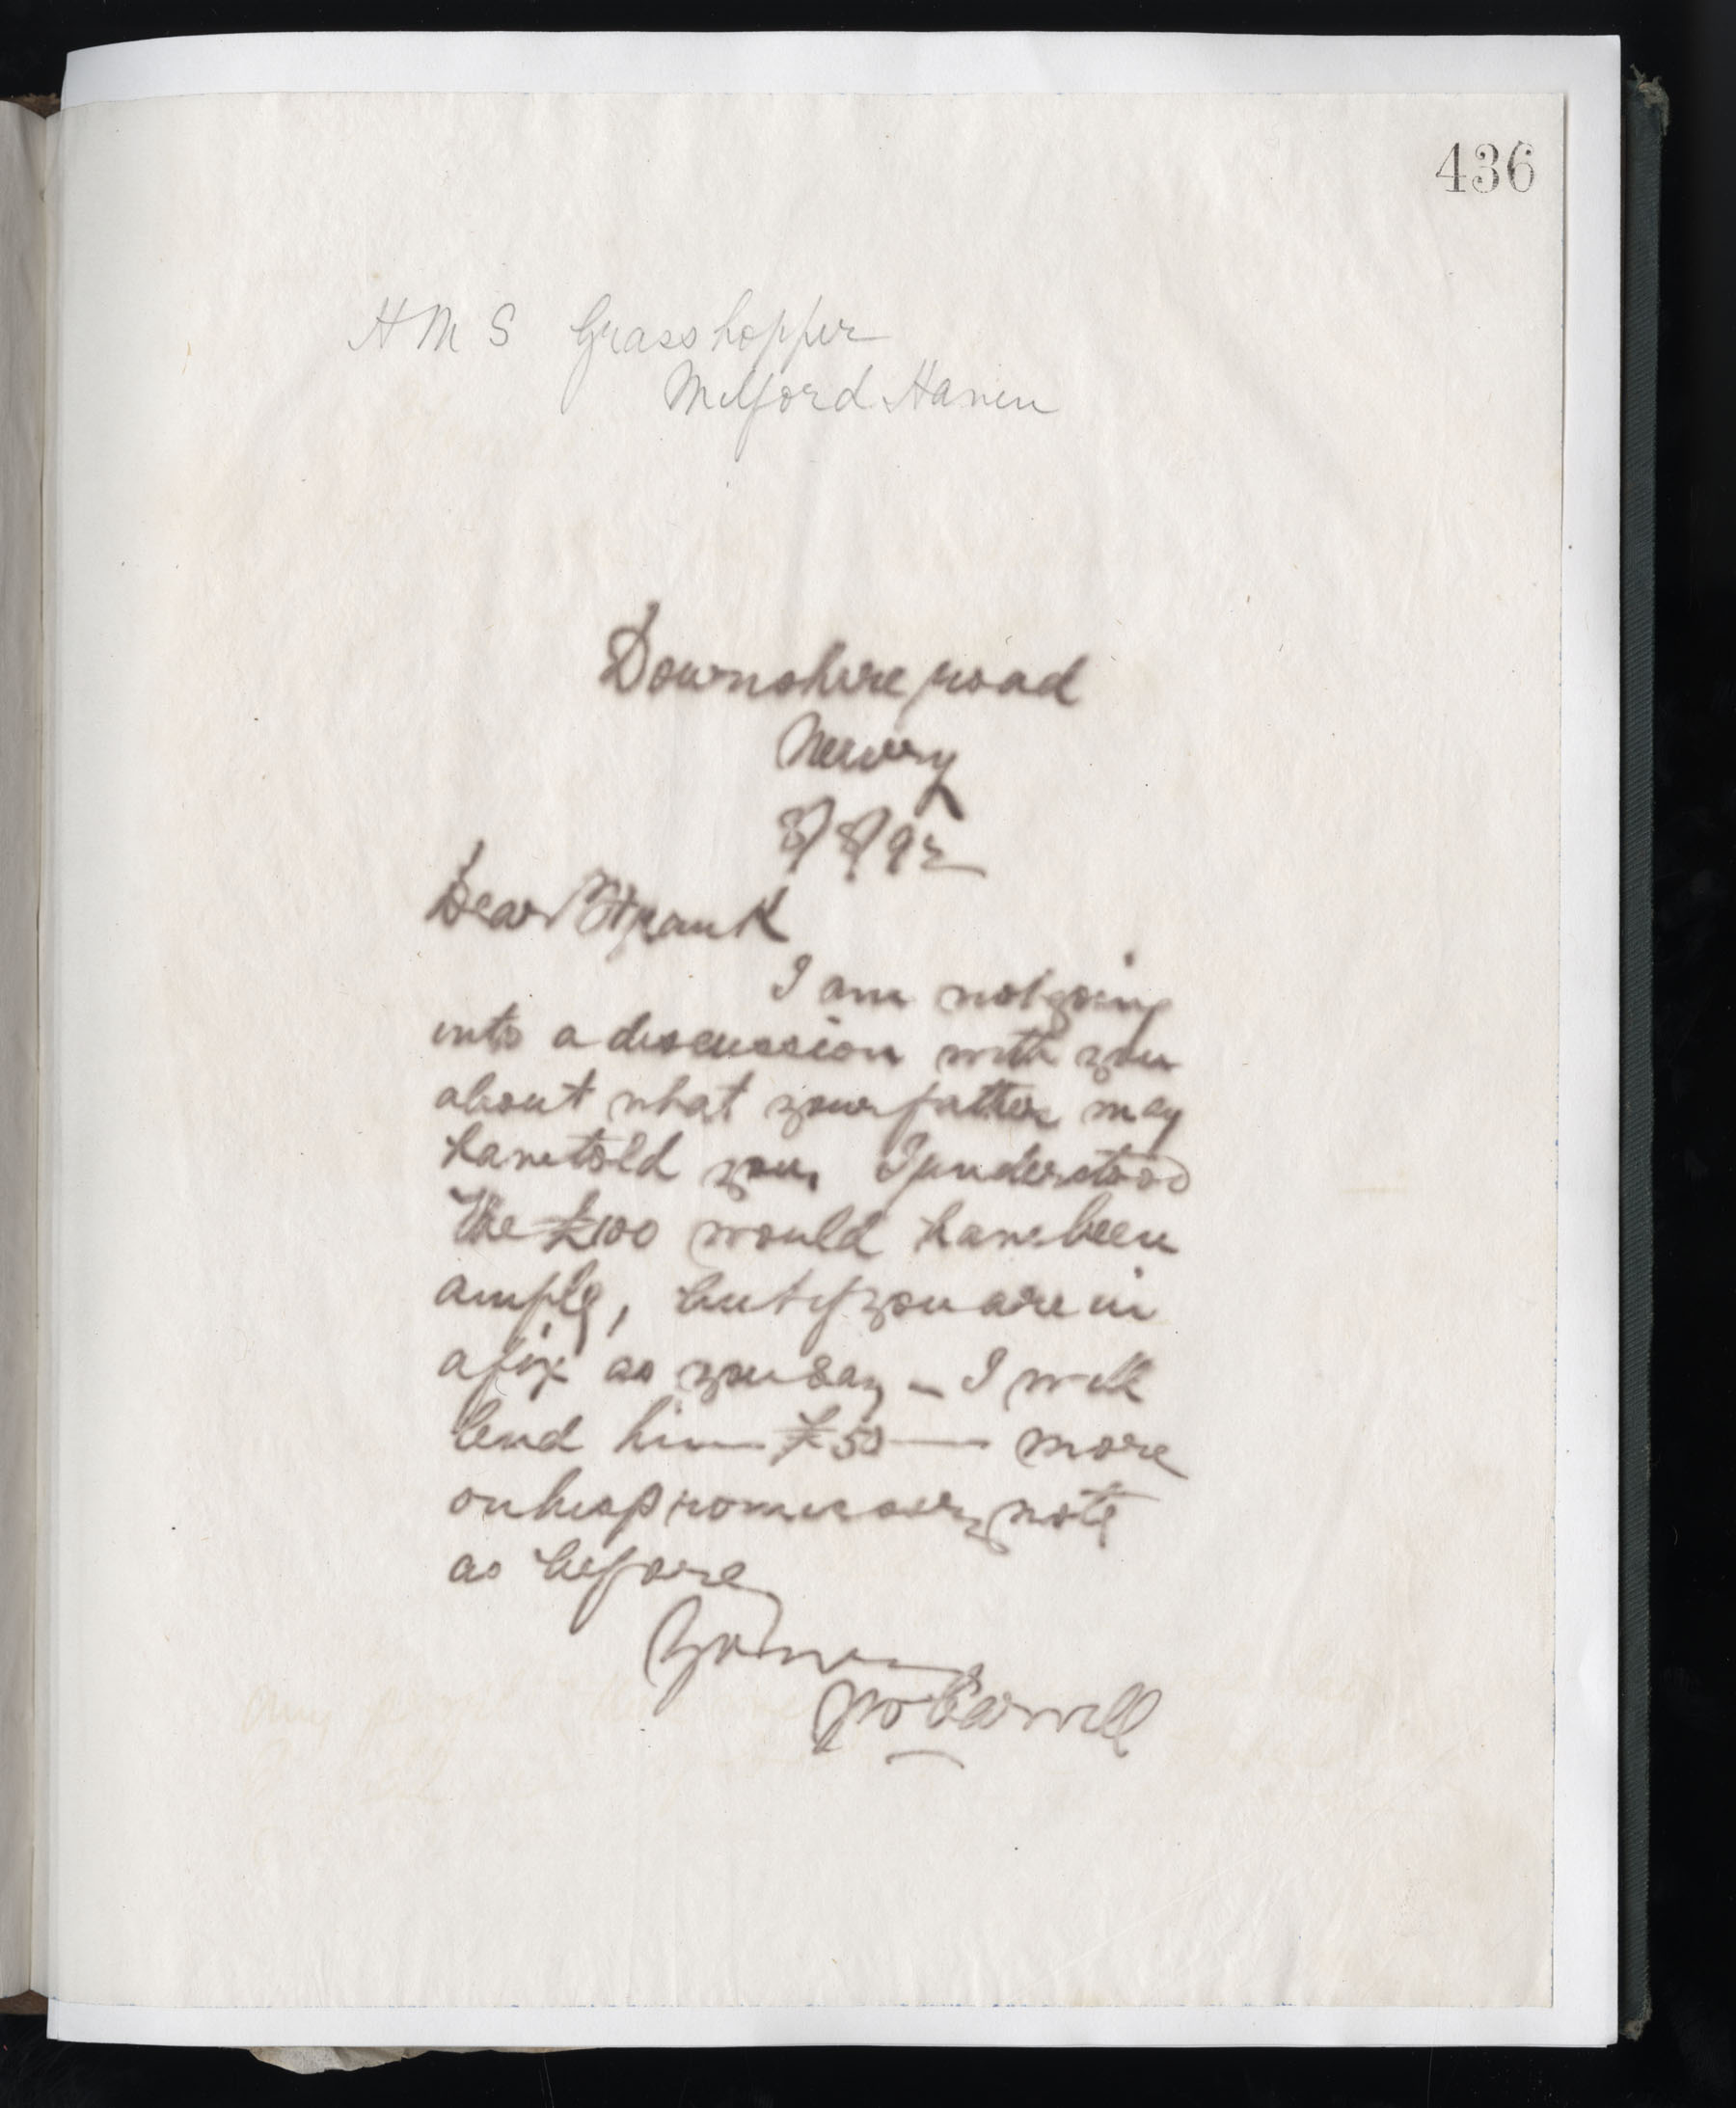 436
H M S Grasshopper
Milford Haven
Downshire road
Newry
8/8/92
Dear Frank
I am not going
into a discussion with you
about what your father may
have told you. I understood
the £100 would have been
ample, but if you are in
a fix as you say – I will
lend him £50 — more
on his promissory note
as before
Yours
Carvill